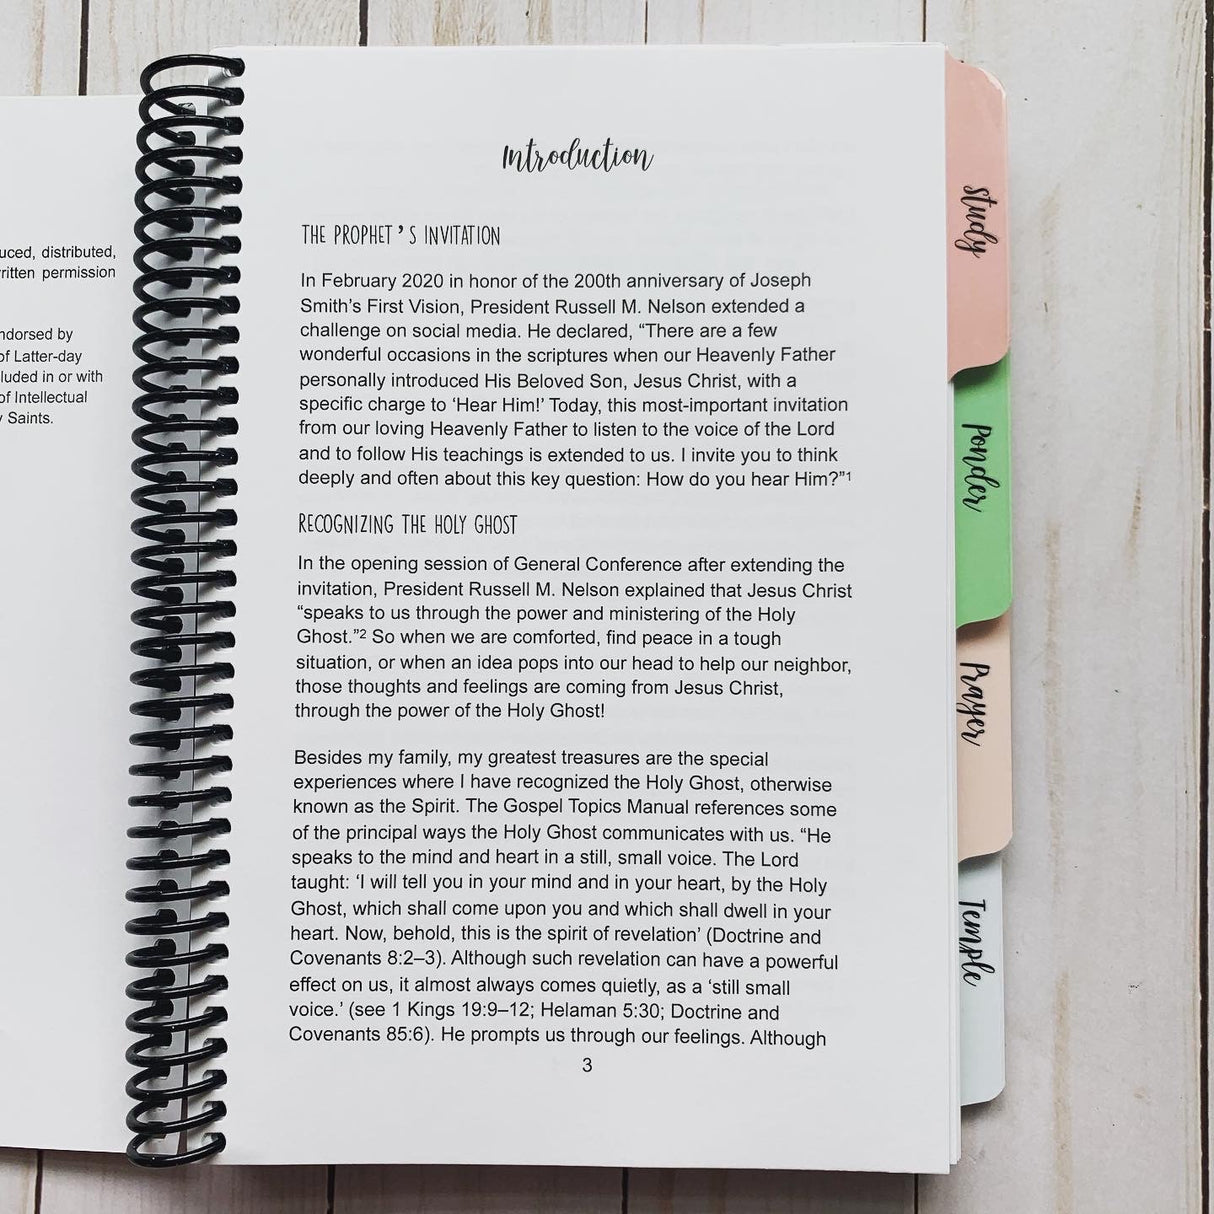 uced, distributed,
ritten permission
ndorsed by
of Latter-day
luded in or with
of Intellectual
Saints.
Introduction
THE PROPHET'S INVITATION
In February 2020 in honor of the 200th anniversary of Joseph
Smith's First Vision, President Russell M. Nelson extended a
challenge on social media. He declared, “There are a few
wonderful occasions in the scriptures when our Heavenly Father
personally introduced His Beloved Son, Jesus Christ, with a
specific charge to ‘Hear Him!’ Today, this most-important invitation
from our loving Heavenly Father to listen to the voice of the Lord
and to follow His teachings is extended to us. I invite you to think
deeply and often about this key question: How do you hear Him?”¹
RECOGNIZING THE HOLY GHOST
In the opening session of General Conference after extending the
invitation, President Russell M. Nelson explained that Jesus Christ
“speaks to us through the power and ministering of the Holy
Ghost.”² So when we are comforted, find peace in a tough
situation, or when an idea pops into our head to help our neighbor,
those thoughts and feelings are coming from Jesus Christ,
through the power of the Holy Ghost!
Besides my family, my greatest treasures are the special
experiences where I have recognized the Holy Ghost, otherwise
known as the Spirit. The Gospel Topics Manual references some
of the principal ways the Holy Ghost communicates with us. “He
speaks to the mind and heart in a still, small voice. The Lord
taught: ‘I will tell you in your mind and in your heart, by the Holy
Ghost, which shall come upon you and which shall dwell in your
heart. Now, behold, this is the spirit of revelation’ (Doctrine and
Covenants 8:2–3). Although such revelation can have a powerful
effect on us, it almost always comes quietly, as a ‘still small
voice.’ (see 1 Kings 19:9–12; Helaman 5:30; Doctrine and
Covenants 85:6). He prompts us through our feelings. Although
3
study
Ponder
Prayer
Temple